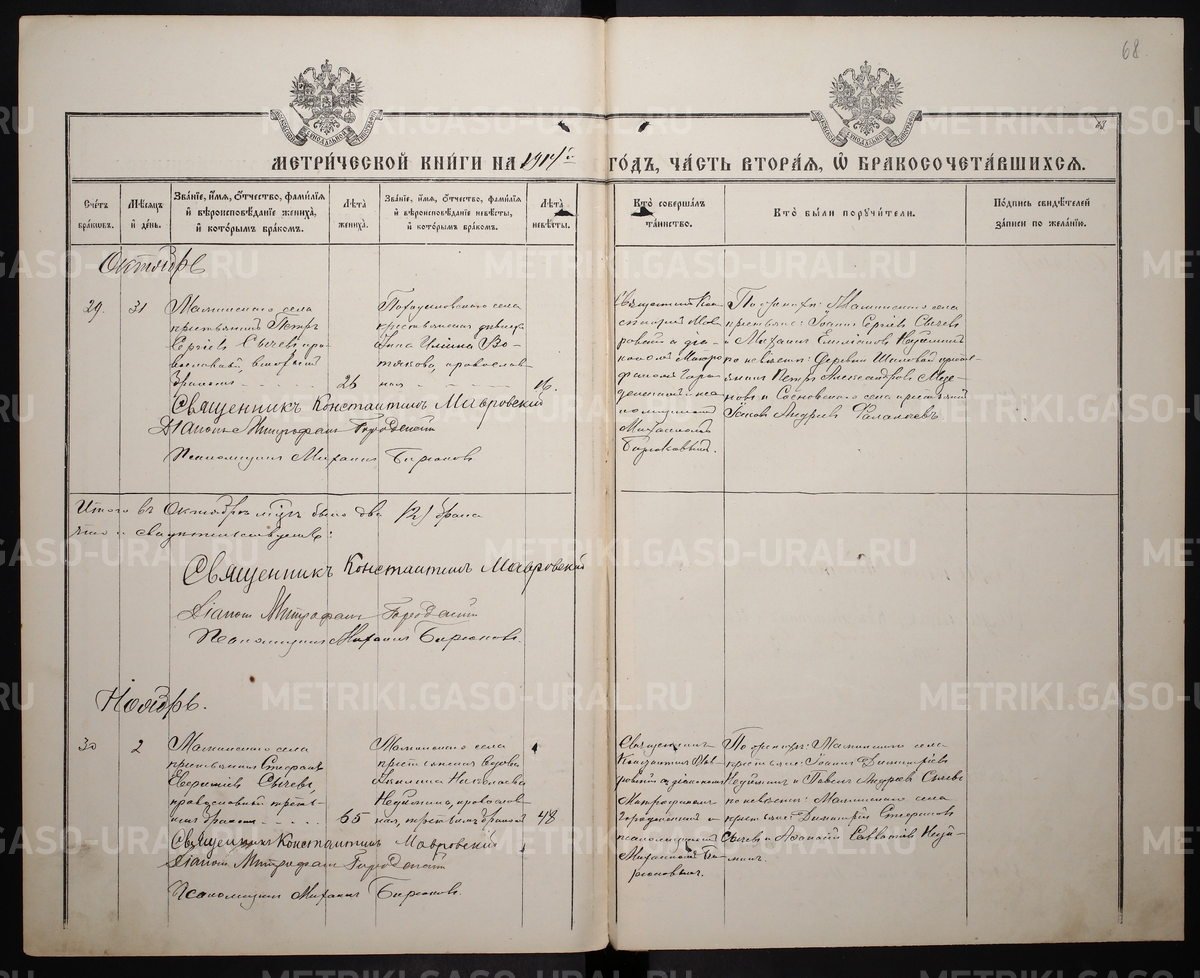 68
МЕТРИ́ЧЕСКОЙ КНИ́ГИ НА 1914й ГО́ДЪ, ЧА́СТЬ ВТОРА́Я, Ѿ БРАКОСОЧЕТА́ВШИХСЯ.
Сче́тъ бра́ковъ.
Мѣ́сяцъ и҆ де́нь.
Зва́нїе, и҆́мя, ѻ҆́тчество, фами́лїя и҆ вѣроисповѣ́данїе жениха̀, и҆ кото́рымъ бра́комъ.
Лѣ́та жениха̀.
Зва́нїе, и҆́мя, ѻ҆́тчество, фами́лїя и҆ вѣроисповѣ́данїе невѣ́сты, и҆ кото́рымъ бра́комъ.
Лѣ́та невѣ́сты.
Кто̀ соверша́лъ та́инство.
Кто̀ бы́ли поручи́тели.
По́дпись свидѣ́телей за́писи по жела́нїю.
Октябрь
29.
31
Маминскаго села
крестьянинъ Петръ
Сергіевъ Сычевъ, пра-
вославный, вторымъ
бракомъ
26
села
крестьянская дѣвица
Анна Ильина Во-
тякова, православ-
ная
16.
Священникъ Кон-
стантинъ Мав-
ровскій съ діа-
кономъ Митро-
фаномъ Горо-
и пса-
ломщикомъ
Михаиломъ
По женихѣ: Маминскаго села
крестьяне: Іоаннъ Сергіевъ Сычевъ
и Михаилъ
по невѣстѣ: деревни
Петръ Александровъ
и Сосновскаго села крестьянинъ
Іаковъ Андреевъ
Священникъ Константинъ Мавровскій
Діаконъ Митрофанъ
Псаломщикъ Михаилъ Бирюковъ
Итого въ Октябрѣ м҃цѣ было два (2) брака
что и свидѣтельствуемъ:
Священникъ Константинъ Мавровскій
Діаконъ Митрофанъ
Псаломщикъ Михаилъ Бирюковъ.
Ноябрь.
30
2
Маминскаго села
крестьянинъ Стефанъ
Сычевъ,
православный, треть-
имъ бракомъ
65
Маминскаго села
крестьянская вдова
Николаева
православ-
ная, третьимъ бракомъ
48
Священникъ
Константинъ Мав-
ровскій съ діакономъ
Митрофаномъ
и
псаломщикомъ
Михаиломъ Би-
рюковымъ.
По женихѣ: Маминскаго села
крестьяне: Іоаннъ Димитріевъ
и Павелъ Андреевъ Сычевъ
по невѣстѣ: Маминскаго села
крестьяне: Димитрій Стефановъ
Сычевъ и
Священникъ Константинъ Мавровскій
Діаконъ Митрофанъ
Псаломщикъ Михаилъ Бирюковъ.
METRIKI.GASO-URAL.RU